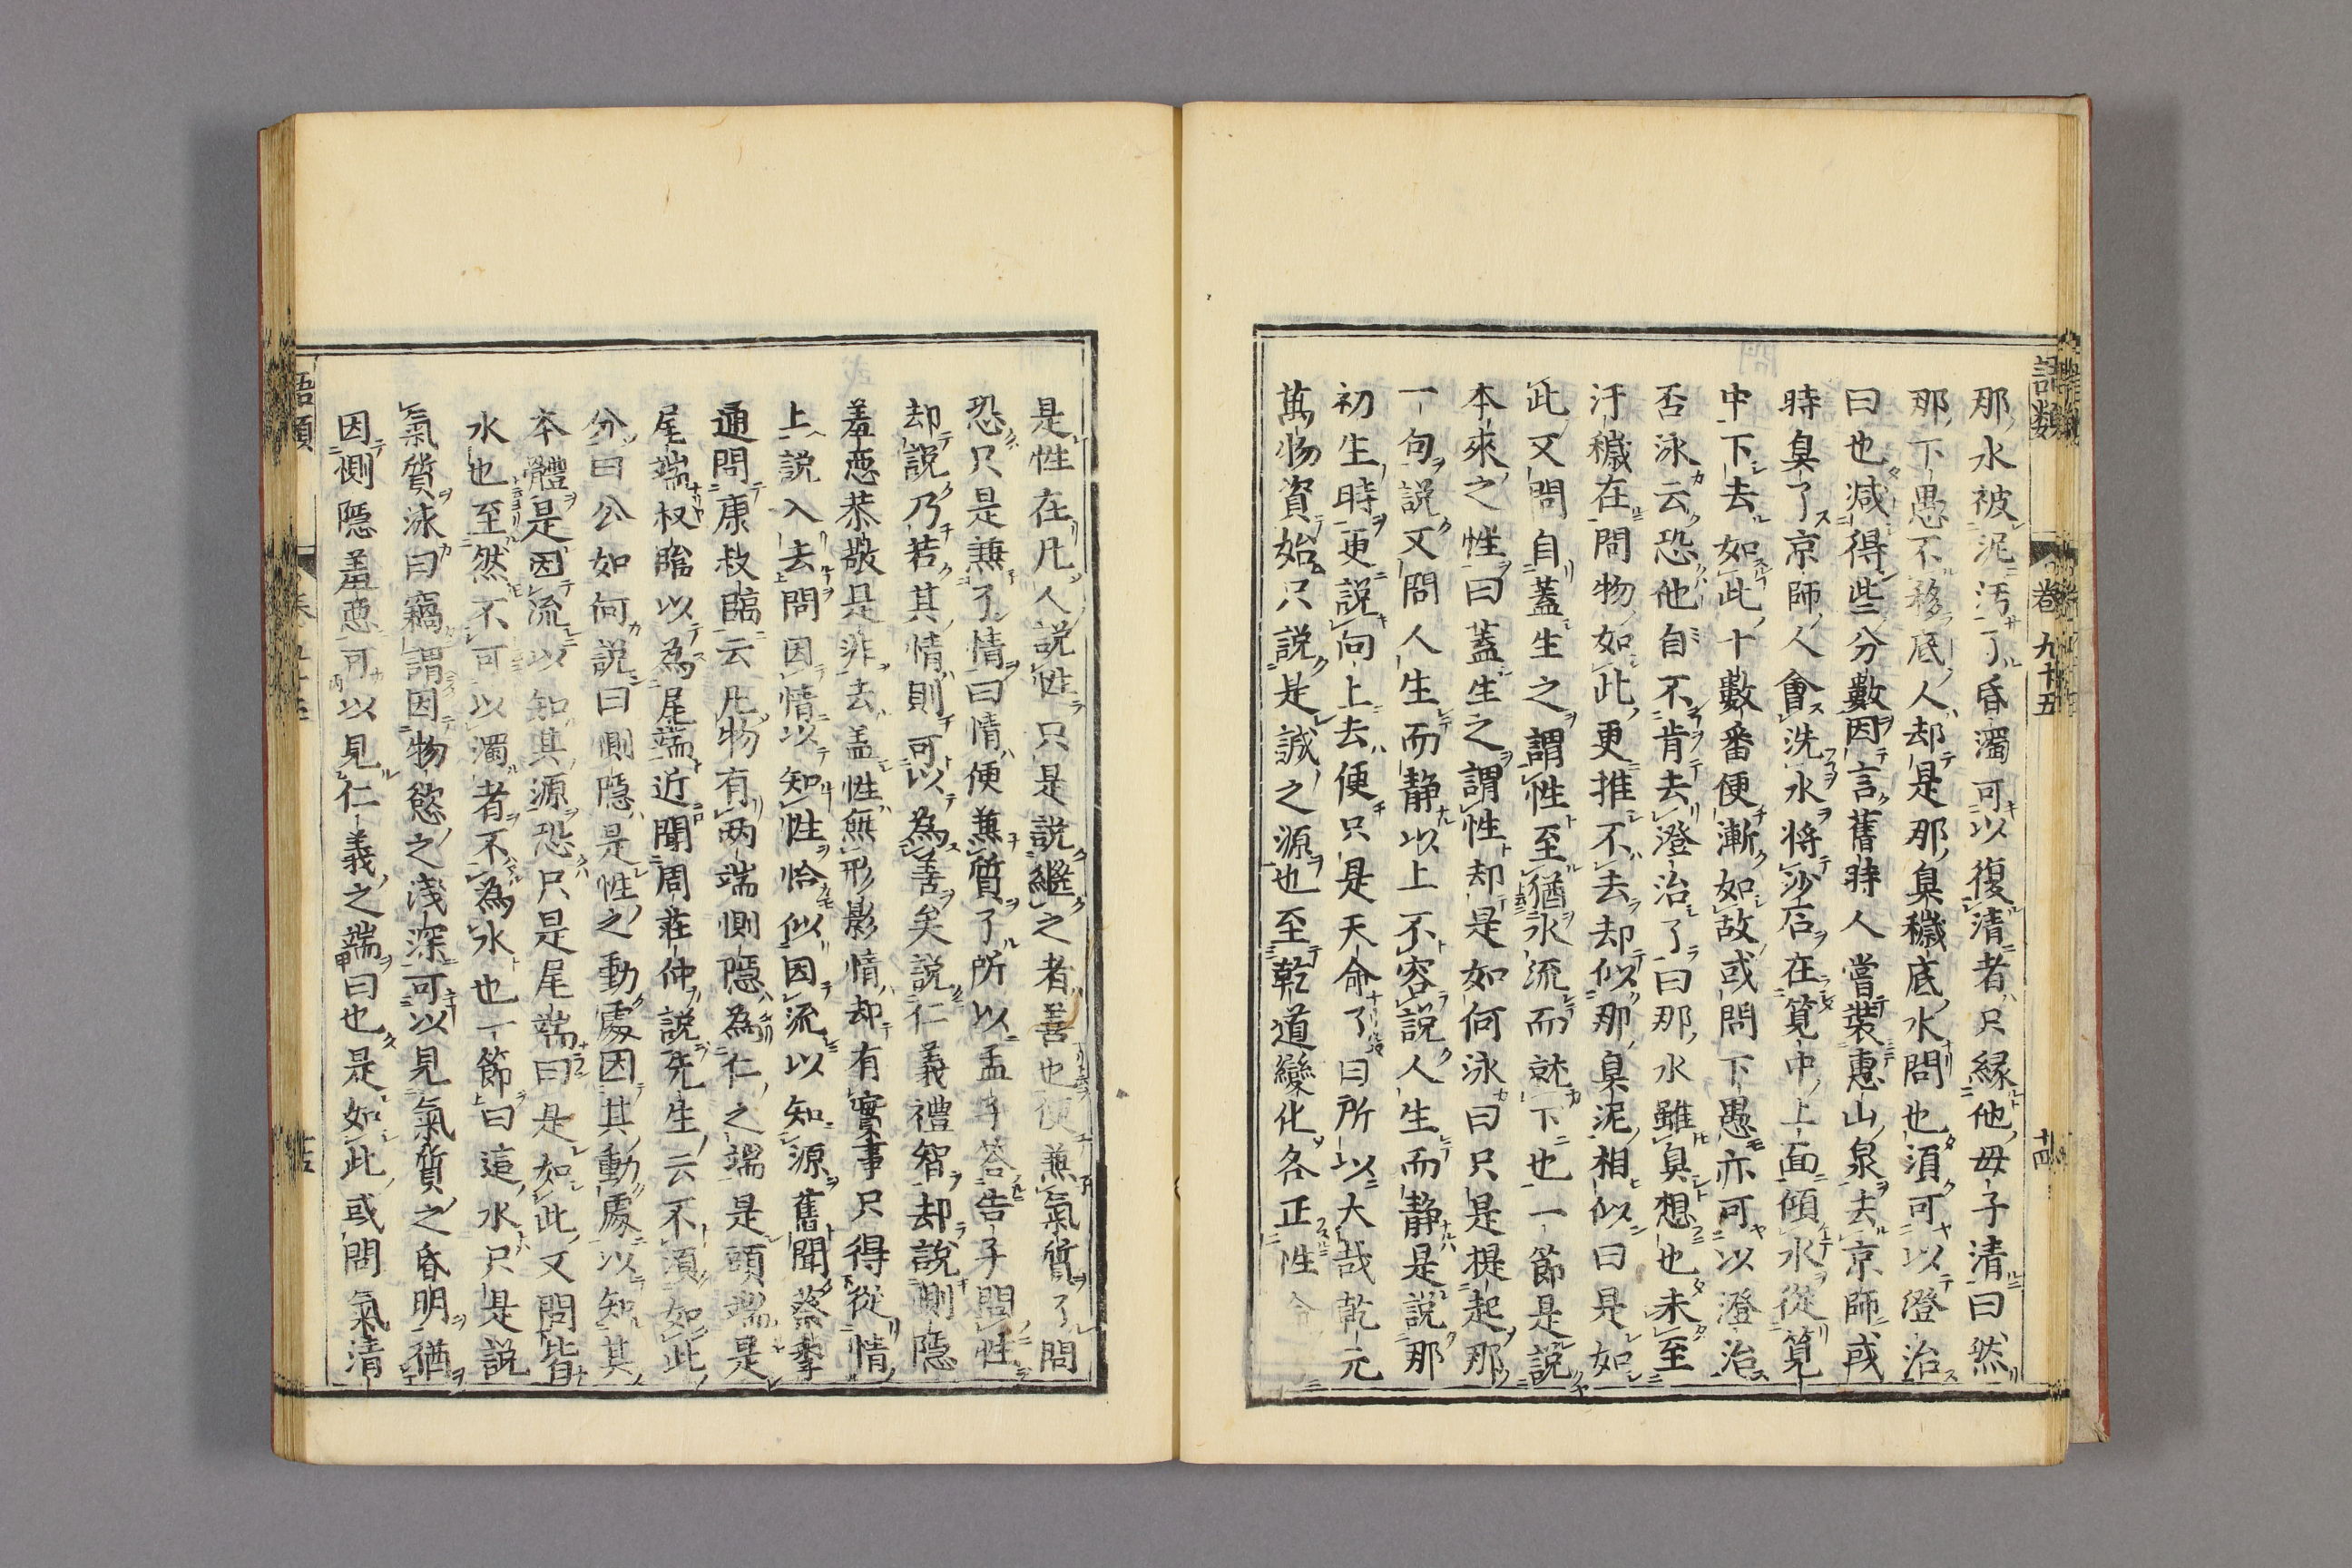 語類
卷九十五
十四
那水被泥汚了昏濁可以復清者只縁他母子清曰然
那下愚不移底人却是那臭穢底水問也湏可以澄治
曰也减得些分數因言舊時人嘗裝惠山泉去京師或
時臭了京師人會洗水將沙石在筧中上面傾水從筧
中下去如此十數番便漸如故或問下愚亦可以澄治
否泳云恐他自不肯去澄治了曰那水雖臭想也未至
汙穢在問物如此更推不去却似那臭泥相似曰是如
此又問自蓋生之謂性至猶水流而就下也一節是説
本來之性曰蓋生之謂性却是如何泳曰只是提起那
一句説又問人生而静以上不容説人生而静是説那
初生時更説向上去便只是天命了曰所以大哉乾元
萬物資始只説是誠之源也至乾道變化各正性命
是性在凡人説性只是説繼之者善也便兼氣質了問
恐只是兼了情曰情便兼質了所以孟子答告子問性
却説乃若其情則可以為善矣説仁義禮智却説惻隱
羞惡恭敬是非去盖性無形影情却有實事只得從情
上説入去問因情以知性恰似因流以知源舊聞蔡季
通問康叔臨云凡物有兩端惻隱為仁之端是頭端是
尾端叔臨以為尾端近聞周莊仲説先生云不湏如此
分曰公如何説曰惻隱是性之動處因其動處以知其
本體是因流以知其源恐只是尾端曰是如此又問皆
水也至然不可以濁者不為水也一節曰這水只是説
氣質泳曰竊謂因物慾之淺深可以見氣質之昏明猶
因惻隱羞惡可以見仁義之端曰也是如此或問氣清
語類